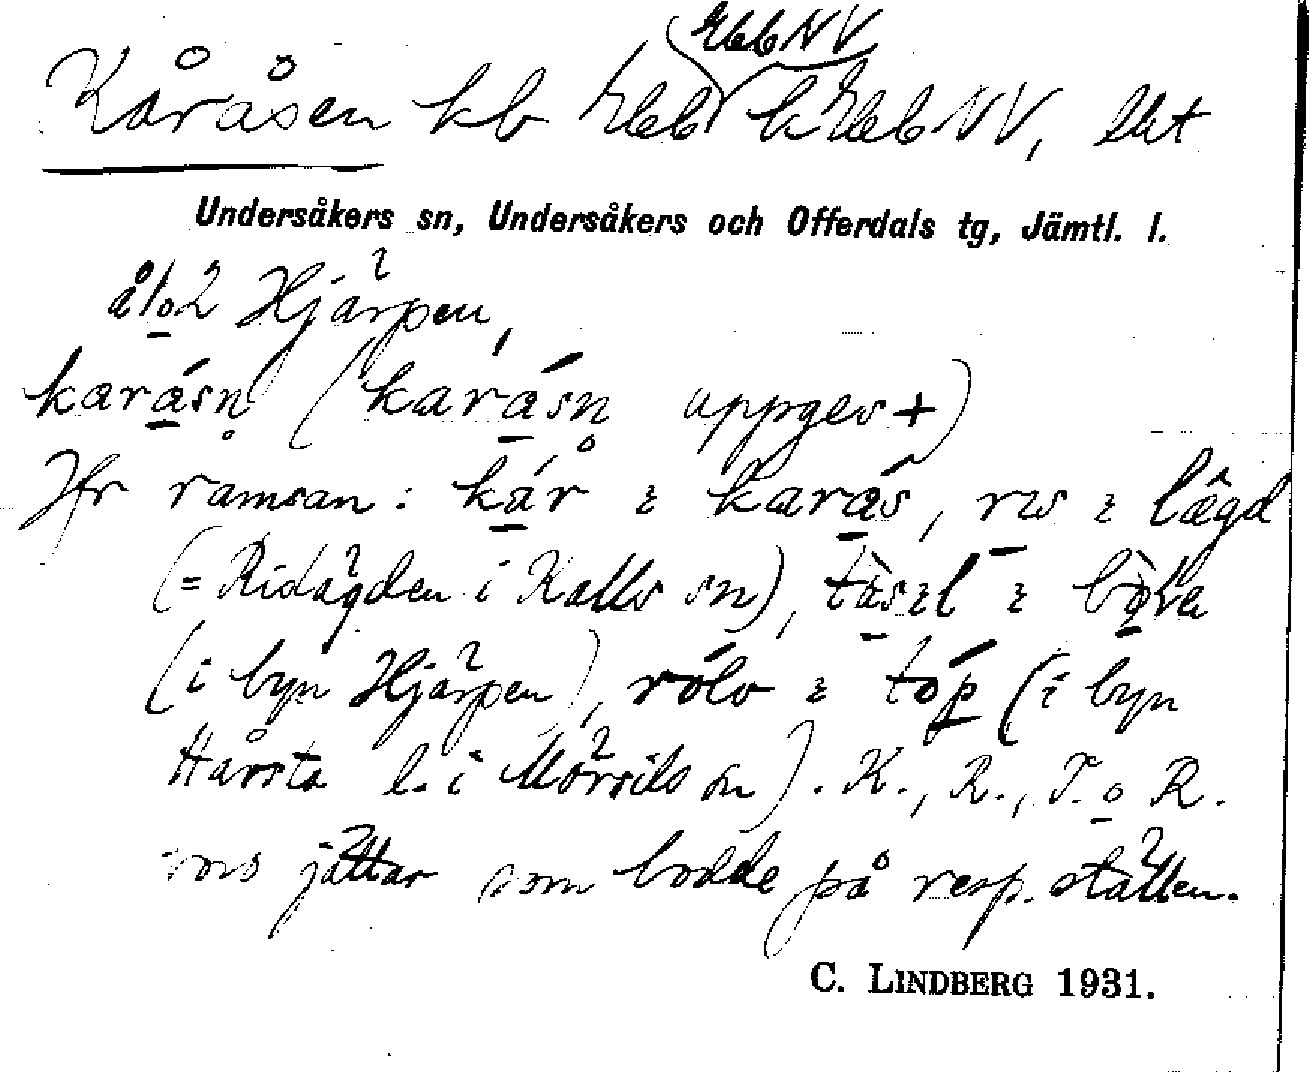 Kåråsen kb
Undersåkers sn, Undersåkers och Offerdals tg, Jämtl. l.
ålo2 Hjärpen,
karásn̥ (karásn̥ uppges +)
Jfr ramsan: kár i karás, ris i lägd
(= Ridägden i Kalls sn), tàsel i
(i byn Hjärpen), rólv i tóp (i byn
Hårsta l. i Mörsils sn). K., R., T. o R.
vors jättar som bodde på resp. ställen.
C. LINDBERG 1931.